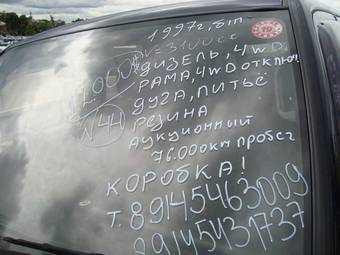 1997г, б/п
V=3100cc
ДИЗЕЛЬ, 4WD
РАМА, 4WD отключ
ДУГА, ЛИТЬЁ
РЕЗИНА
АУКЦИОННЫЙ
76.000км пробег
КОРОБКА!
Т. 89145463009
89145431737
N44